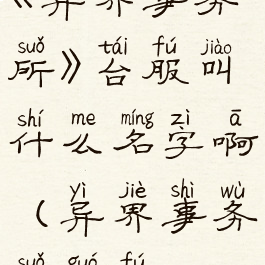 《异界事务
suǒ tái fú jiào
所》台服叫
shí me míng zì ā
什么名字啊
yì jiè shì wù
（异界事务
suǒ guó fú